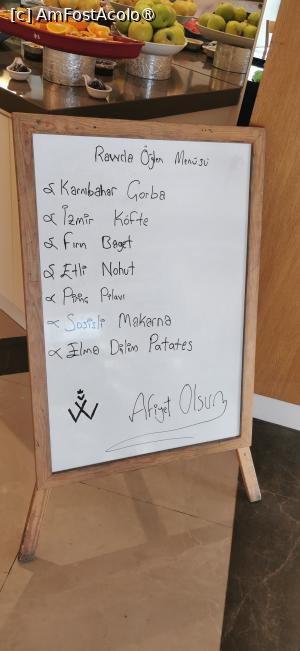 [c] AmFostAcolo®
Rawda Öğlen Menüsü
Karnıbahar Çorba
İzmir Köfte
Fırın Baget
Etli Nohut
Pilavı
Sosisli Makarna
Elma Dilim Patates
Afiyet Olsun
W